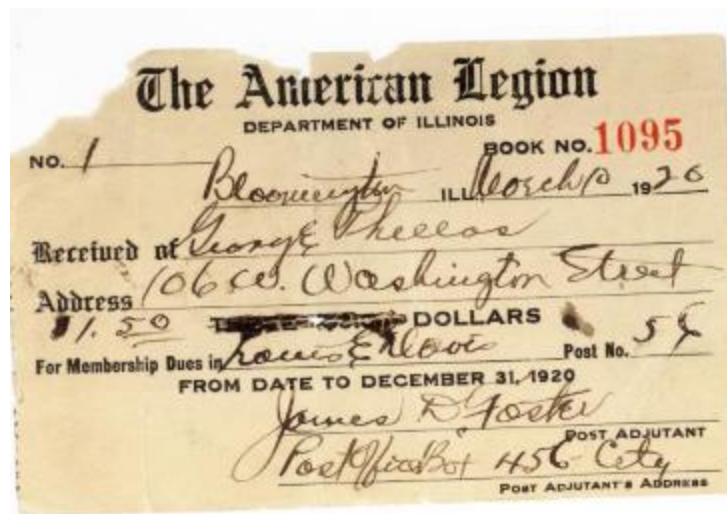 The American Legion
DEPARTMENT OF ILLINOIS
NO. 1 BOOK NO. 1095
Bloomington ILL. March 10 1920
Received of George
Address 106 W. Washington Street
$1.50 DOLLARS
For Membership Dues in Louis E Davis Post No. 56
FROM DATE TO DECEMBER 31, 1920
James D. Foster
POST ADJUTANT
Post Office Box 456 City
POST ADJUTANT'S ADDRESS